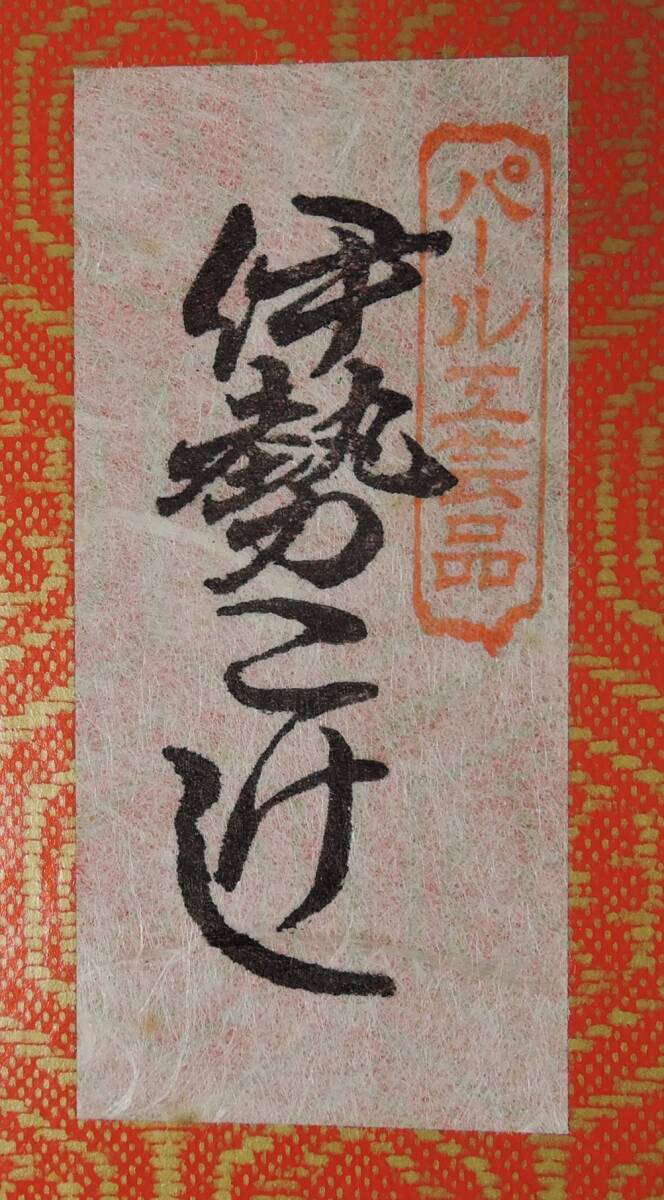 パール工芸品
伊勢こけし